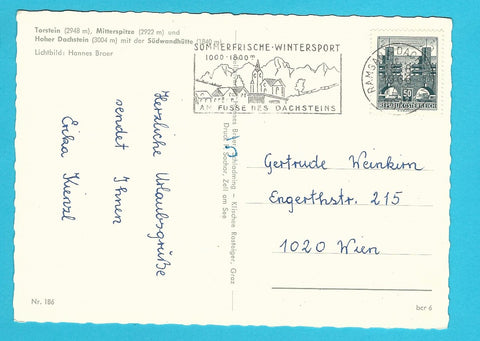 Torstein (2948 m), Mitterspitze (2922 m) und
Hoher Dachstein (3004 m) mit der Südwandhütte (1840 m)
Lichtbild: Hannes Broer
SOMMERFRISCHE · WINTERSPORT
1000-1800 m
AM FUSSE DES DACHSTEINS
RAMSAU
50
REPUBLIK ÖSTERREICH
Herzliche Urlaubsgrüße
sendet Ihnen
Erika Kienzl
Schladming – Klischee Rasteiger, Graz
Zell am See
Gertrude Weinkirn
Engerthstr. 215
1020 Wien
Nr. 186
ber 6